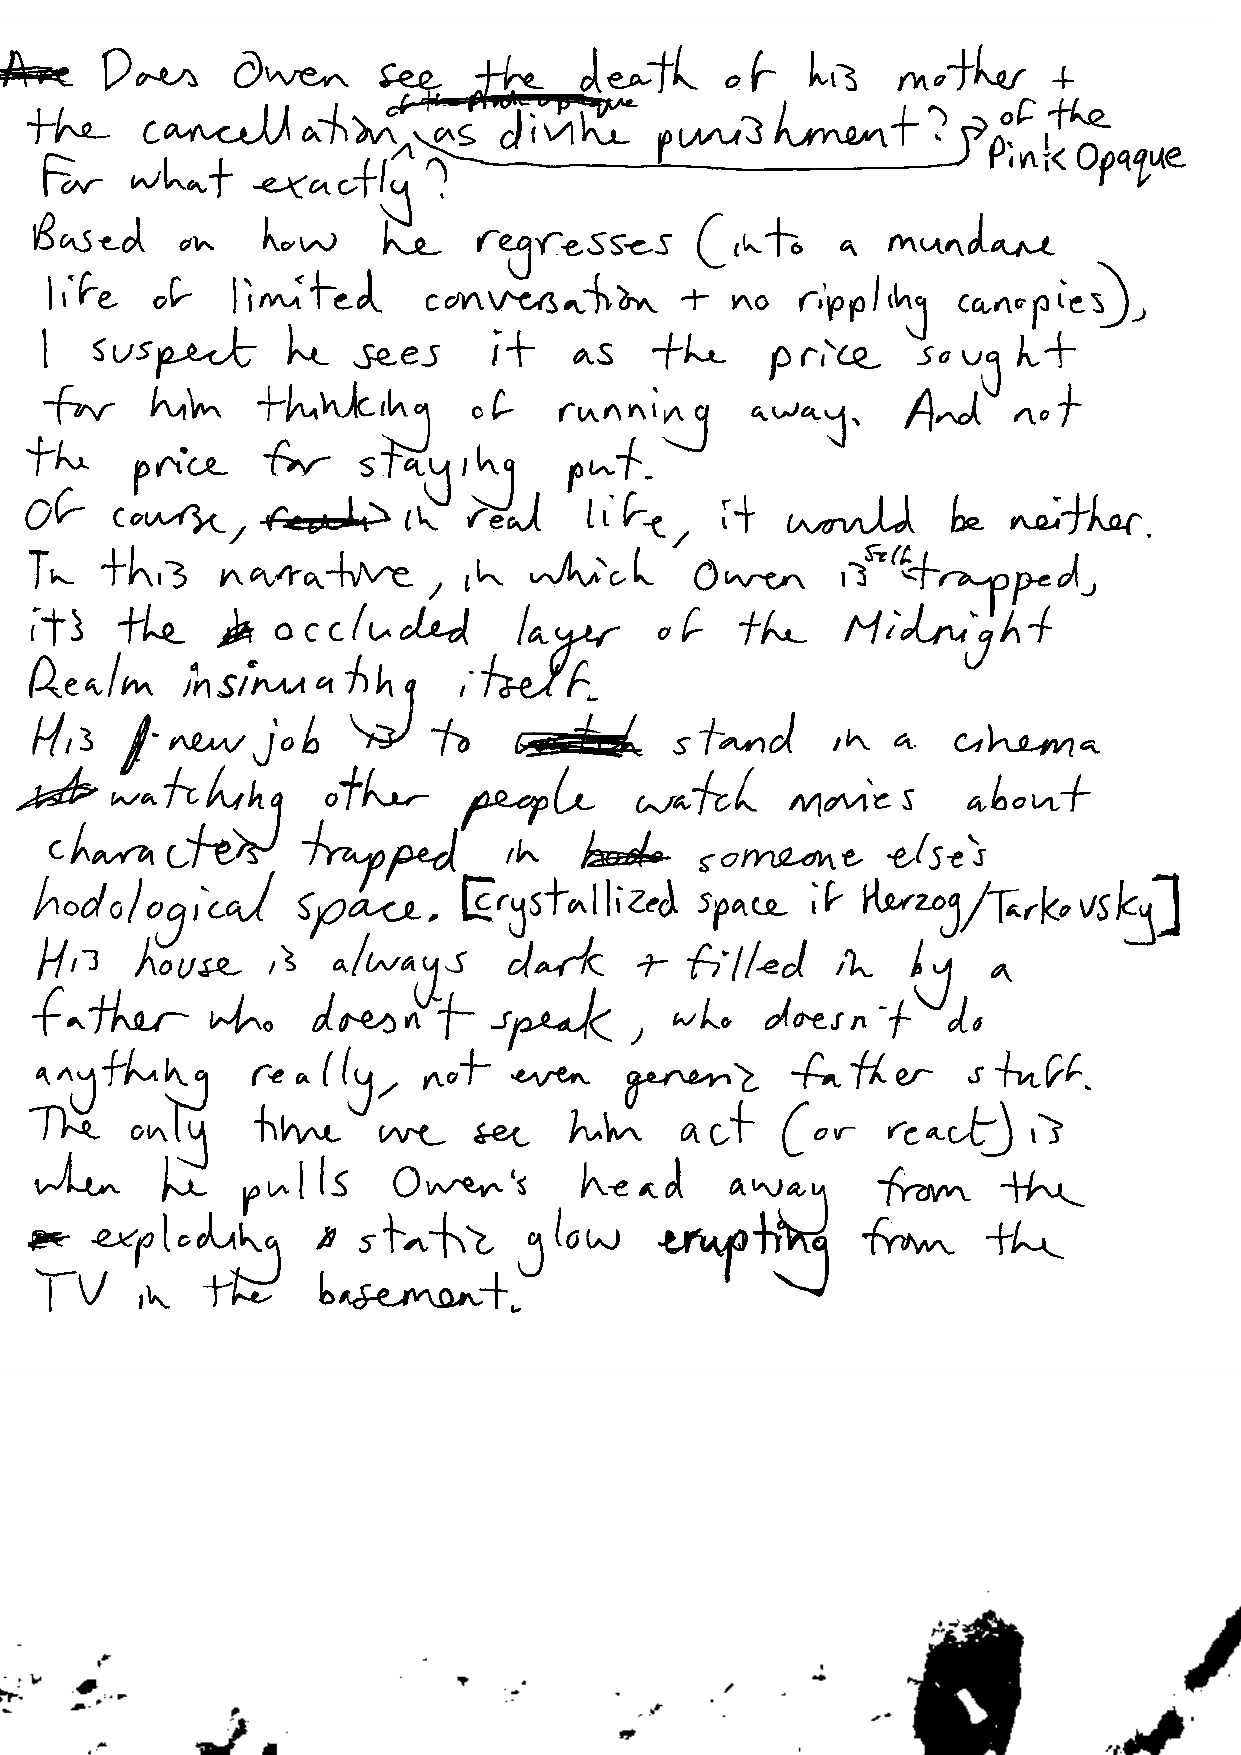 Does Owen see the death of his mother +
the cancellation of the Pink Opaque as divine punishment?
For what exactly?
Based on how he regresses (into a mundane
life of limited conversation + no rippling canopies),
I suspect he sees it as the price sought
for him thinking of running away. And not
the price for staying put.
Of course, in real life, it would be neither.
In this narrative, in which Owen is self-trapped,
it's the occluded layer of the Midnight
Realm insinuating itself.
His new job is to stand in a cinema
watching other people watch movies about
characters trapped in someone else's
hodological space. [crystallized space if Herzog/Tarkovsky]
His house is always dark + filled in by a
father who doesn't speak, who doesn't do
anything really, not even generic father stuff.
The only time we see him act (or react) is
when he pulls Owen's head away from the
exploding static glow erupting from the
TV in the basement.